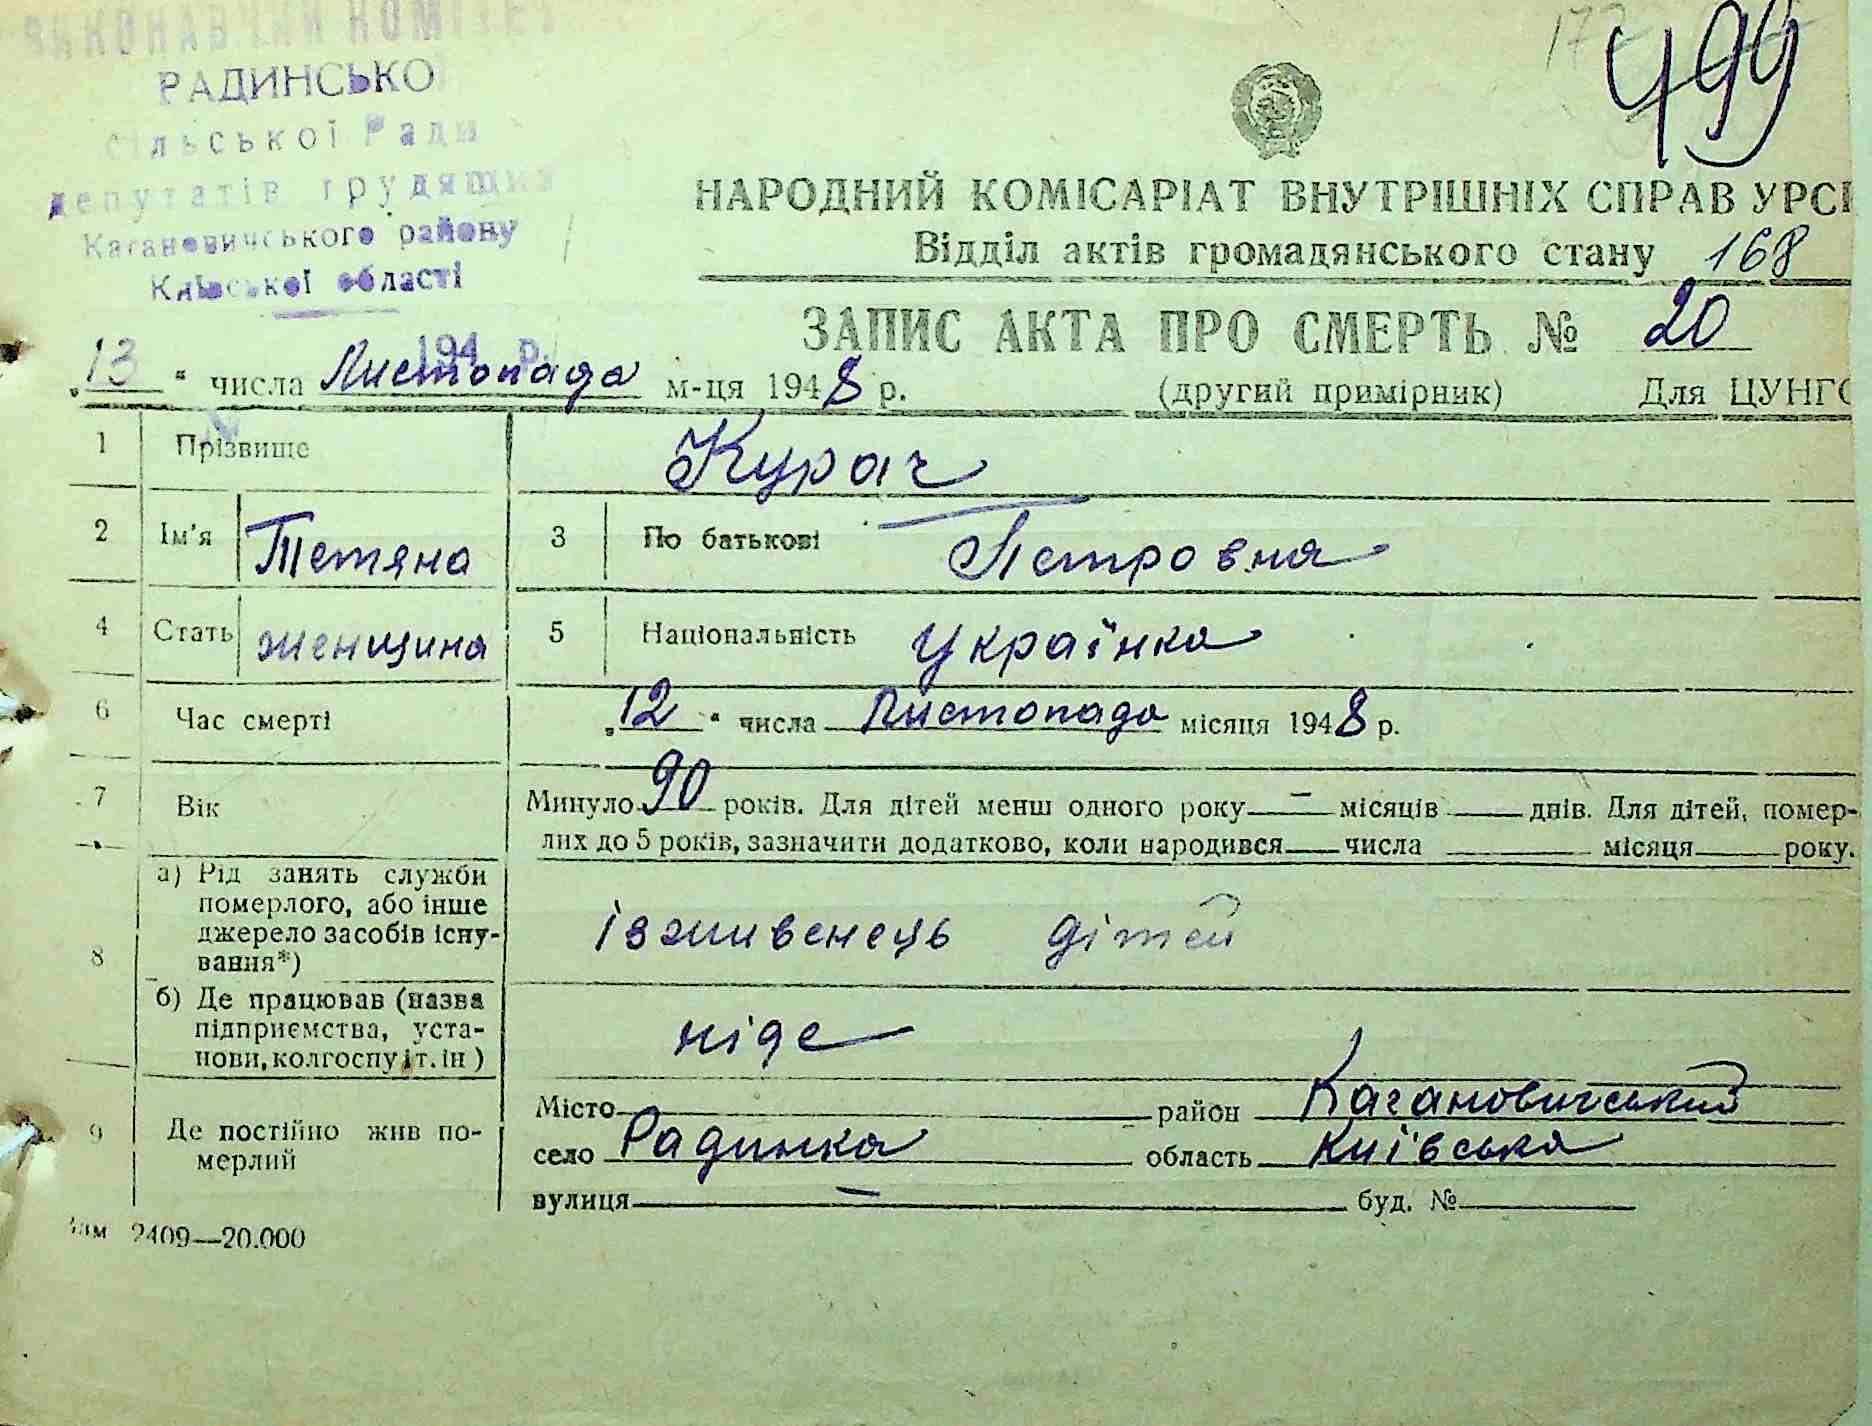 ВИКОНАВЧИЙ КОМІТЕТ
РАДИНСЬКО
сільської Ради
депутатів трудящих
Кагановичського району
Київської області
194 р.
177
499
НАРОДНИЙ КОМІСАРІАТ ВНУТРІШНІХ СПРАВ УРСР
Відділ актів громадянського стану 168
ЗАПИС АКТА ПРО СМЕРТЬ № 20
„13" числа Листопада м-ця 1948 р. (другий примірник) Для ЦУНГО
1 Прізвище Курач
2 Ім'я Тетяна 3 По батькові Петровна
4 Стать женщина 5 Національність Українка
6 Час смерті „12" числа Листопада місяця 1948 р.
7 Вік Минуло 90 років. Для дітей менш одного року — місяців днів. Для дітей, помер-
лих до 5 років, зазначити додатково, коли народився числа місяця року.
8 а) Рід занять служби
померлого, або інше
джерело засобів існу-
вання*) ізживенець дітей
б) Де працював (назва
підприємства, уста-
нови, колгоспу іт. ін) ніде
9 Де постійно жив по-
мерлий
Місто район Кагановичський
село Радинка область Київська
вулиця — буд. №
Зам 2409—20.000